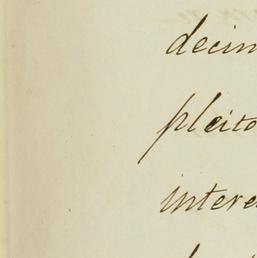 decim
pleito
intere